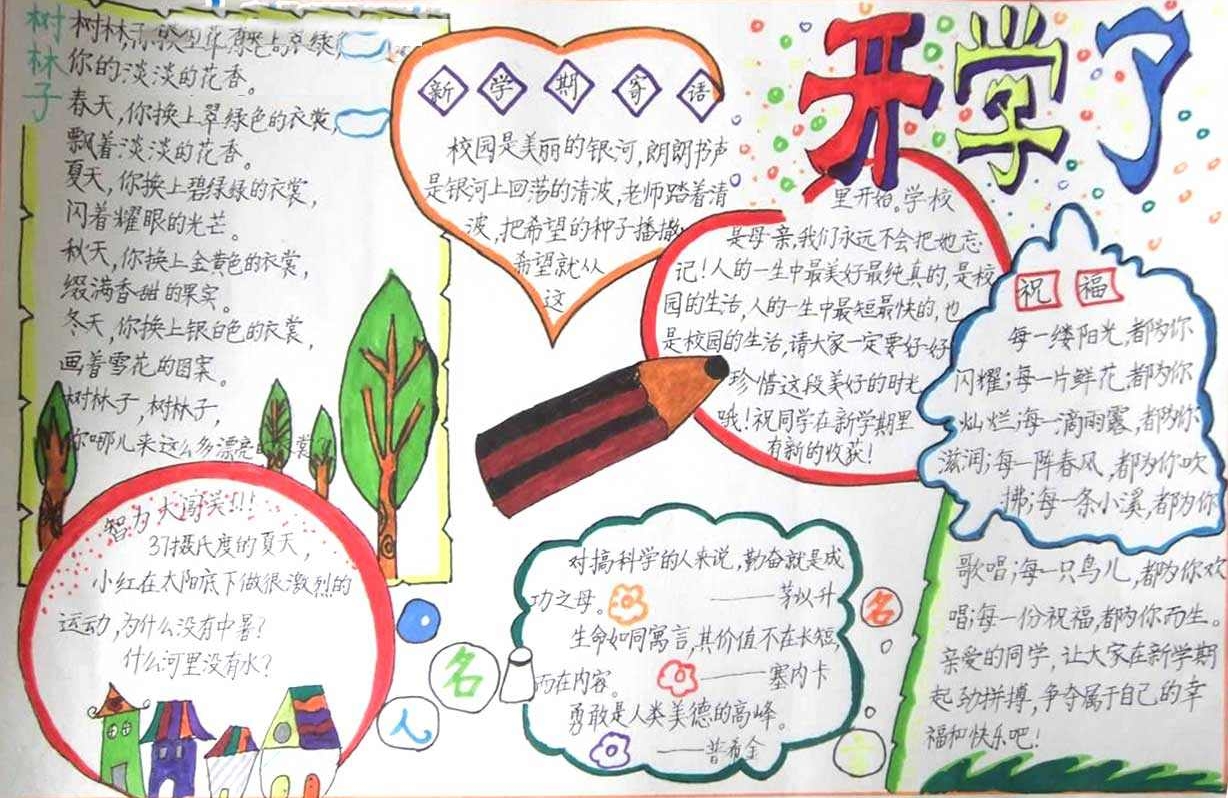 开学了
树林子
你的淡淡的花香。
春天,你换上翠绿色的衣裳,
飘着淡淡的花香。
夏天,你换上碧绿绿的衣裳,
闪着耀眼的光芒。
秋天,你换上金黄色的衣裳,
缀满香甜的果实。
冬天,你换上银白色的衣裳,
画着雪花的图案。
树林子,树林子,
你哪儿来这么多漂亮的衣裳?
新学期寄语
校园是美丽的银河,朗朗书声
是银河上回荡的清波,老师踏着清
波,把希望的种子播撒
希望就从
这
里开始。学校
是母亲,我们永远不会把她忘
记!人的一生中最美好最纯真的,是校
园的生活,人的一生中最短最快的,也
是校园的生活,请大家一定要好好
珍惜这段美好的时光
哦!祝同学在新学期里
有新的收获!
祝福
每一缕阳光,都为你
闪耀;每一片鲜花,都为你
灿烂;每一滴雨露,都为你
滋润;每一阵春风,都为你吹
拂;每一条小溪,都为你
歌唱;每一只鸟儿,都为你欢
唱;每一份祝福,都为你而生。
亲爱的同学,让大家在新学期
起劲拼搏,争夺属于自己的幸
福和快乐吧!
智力大闯关!!!
37摄氏度的夏天,
小红在太阳底下做很激烈的
运动,为什么没有中暑?
什么河里没有水?
名
人
名
言
对搞科学的人来说,勤奋就是成
功之母。
——茅以升
生命如同寓言,其价值不在长短,
而在内容。
——塞内卡
勇敢是人类美德的高峰。
——普希金